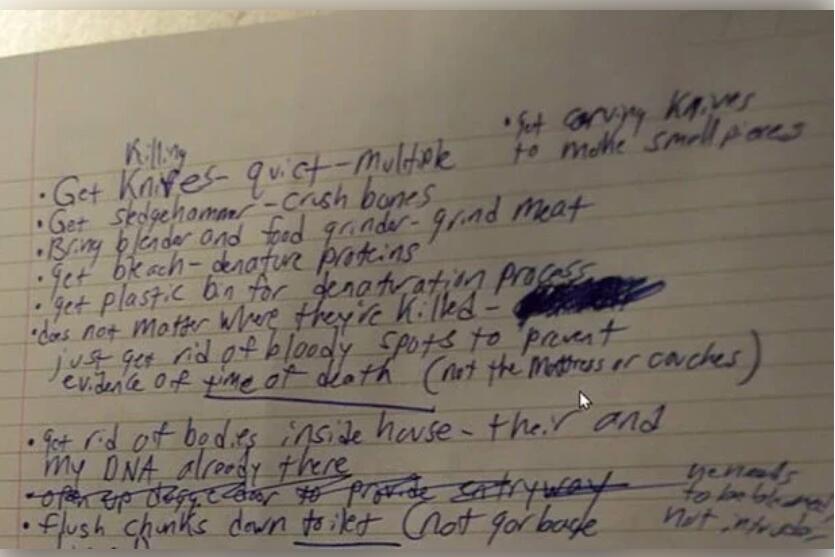 • Get carving knives
to make small pieces
Killing
• Get Knives - quiet - multiple
• Get sledgehammer - crush bones
• Bring blender and food grinder - grind meat
• get bleach - denature proteins
• get plastic bin for denaturation process
• does not matter where they're killed -
just get rid of bloody spots to prevent
evidence of time of death (not the mattress or couches)
• get rid of bodies inside house - their and
my DNA already there
• open up to provide entryway
• flush chunks down toilet (not garbage
he needs
to be
not